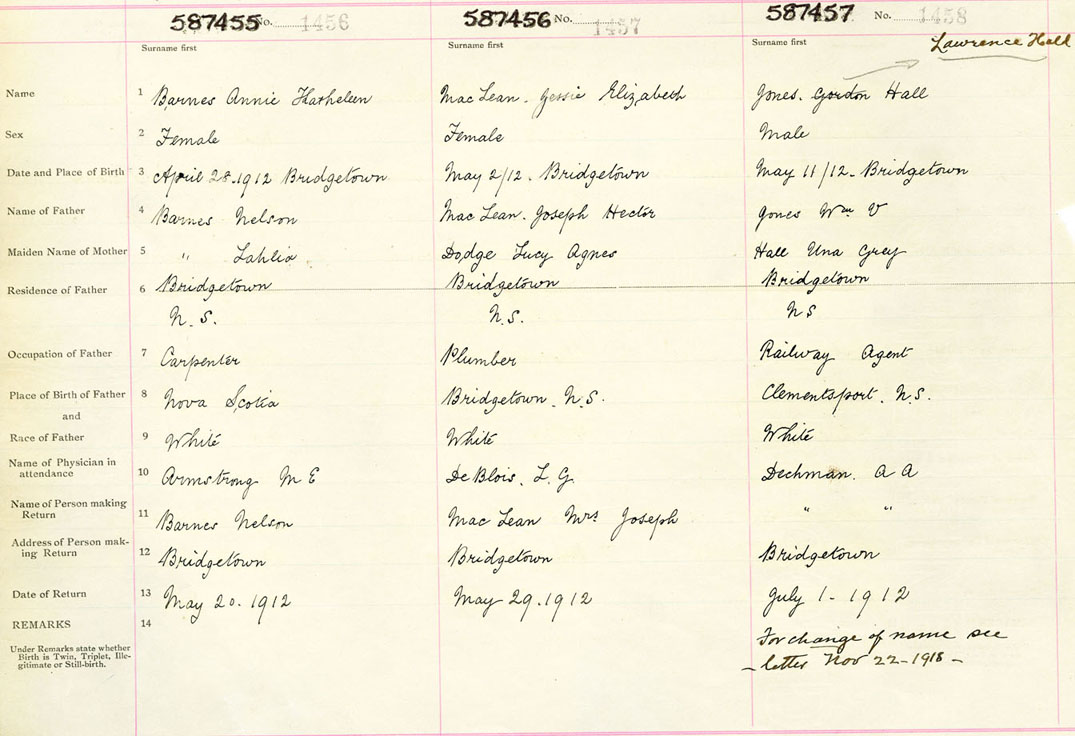 587455 No. 1456 587456 No. 1457 587457 No. 1458
Surname first Surname first Surname first Lawrence Hall
Name 1 Barnes Annie Katheleen MacLean. Jessie Elizabeth Jones. Gordon Hall
Sex 2 Female Female Male
Date and Place of Birth 3 April 28.1912 Bridgetown May 2/12. Bridgetown May 11/12. Bridgetown
Name of Father 4 Barnes Nelson MacLean. Joseph Hector Jones Wm V
Maiden Name of Mother 5 " Dodge Lucy Agnes Hall Una Grey
Residence of Father 6 Bridgetown Bridgetown Bridgetown
N. S. N.S. N S
Occupation of Father 7 Carpenter Plumber Railway Agent
Place of Birth of Father 8 Nova Scotia Bridgetown. N.S. Clementsport. N.S.
and
Race of Father 9 White White White
Name of Physician in
attendance 10 Armstrong M E DeBlois. L.G. Dechman. A A
Name of Person making
Return 11 Barnes Nelson MacLean Mrs Joseph " "
Address of Person mak-
ing Return 12 Bridgetown Bridgetown Bridgetown
Date of Return 13 May 20. 1912 May 29.1912 July 1-1912
REMARKS 14
Under Remarks state whether
Birth is Twin, Triplet, Ille-
gitimate or Still-birth.
For change of name see
- letter Nov 22-1918 -